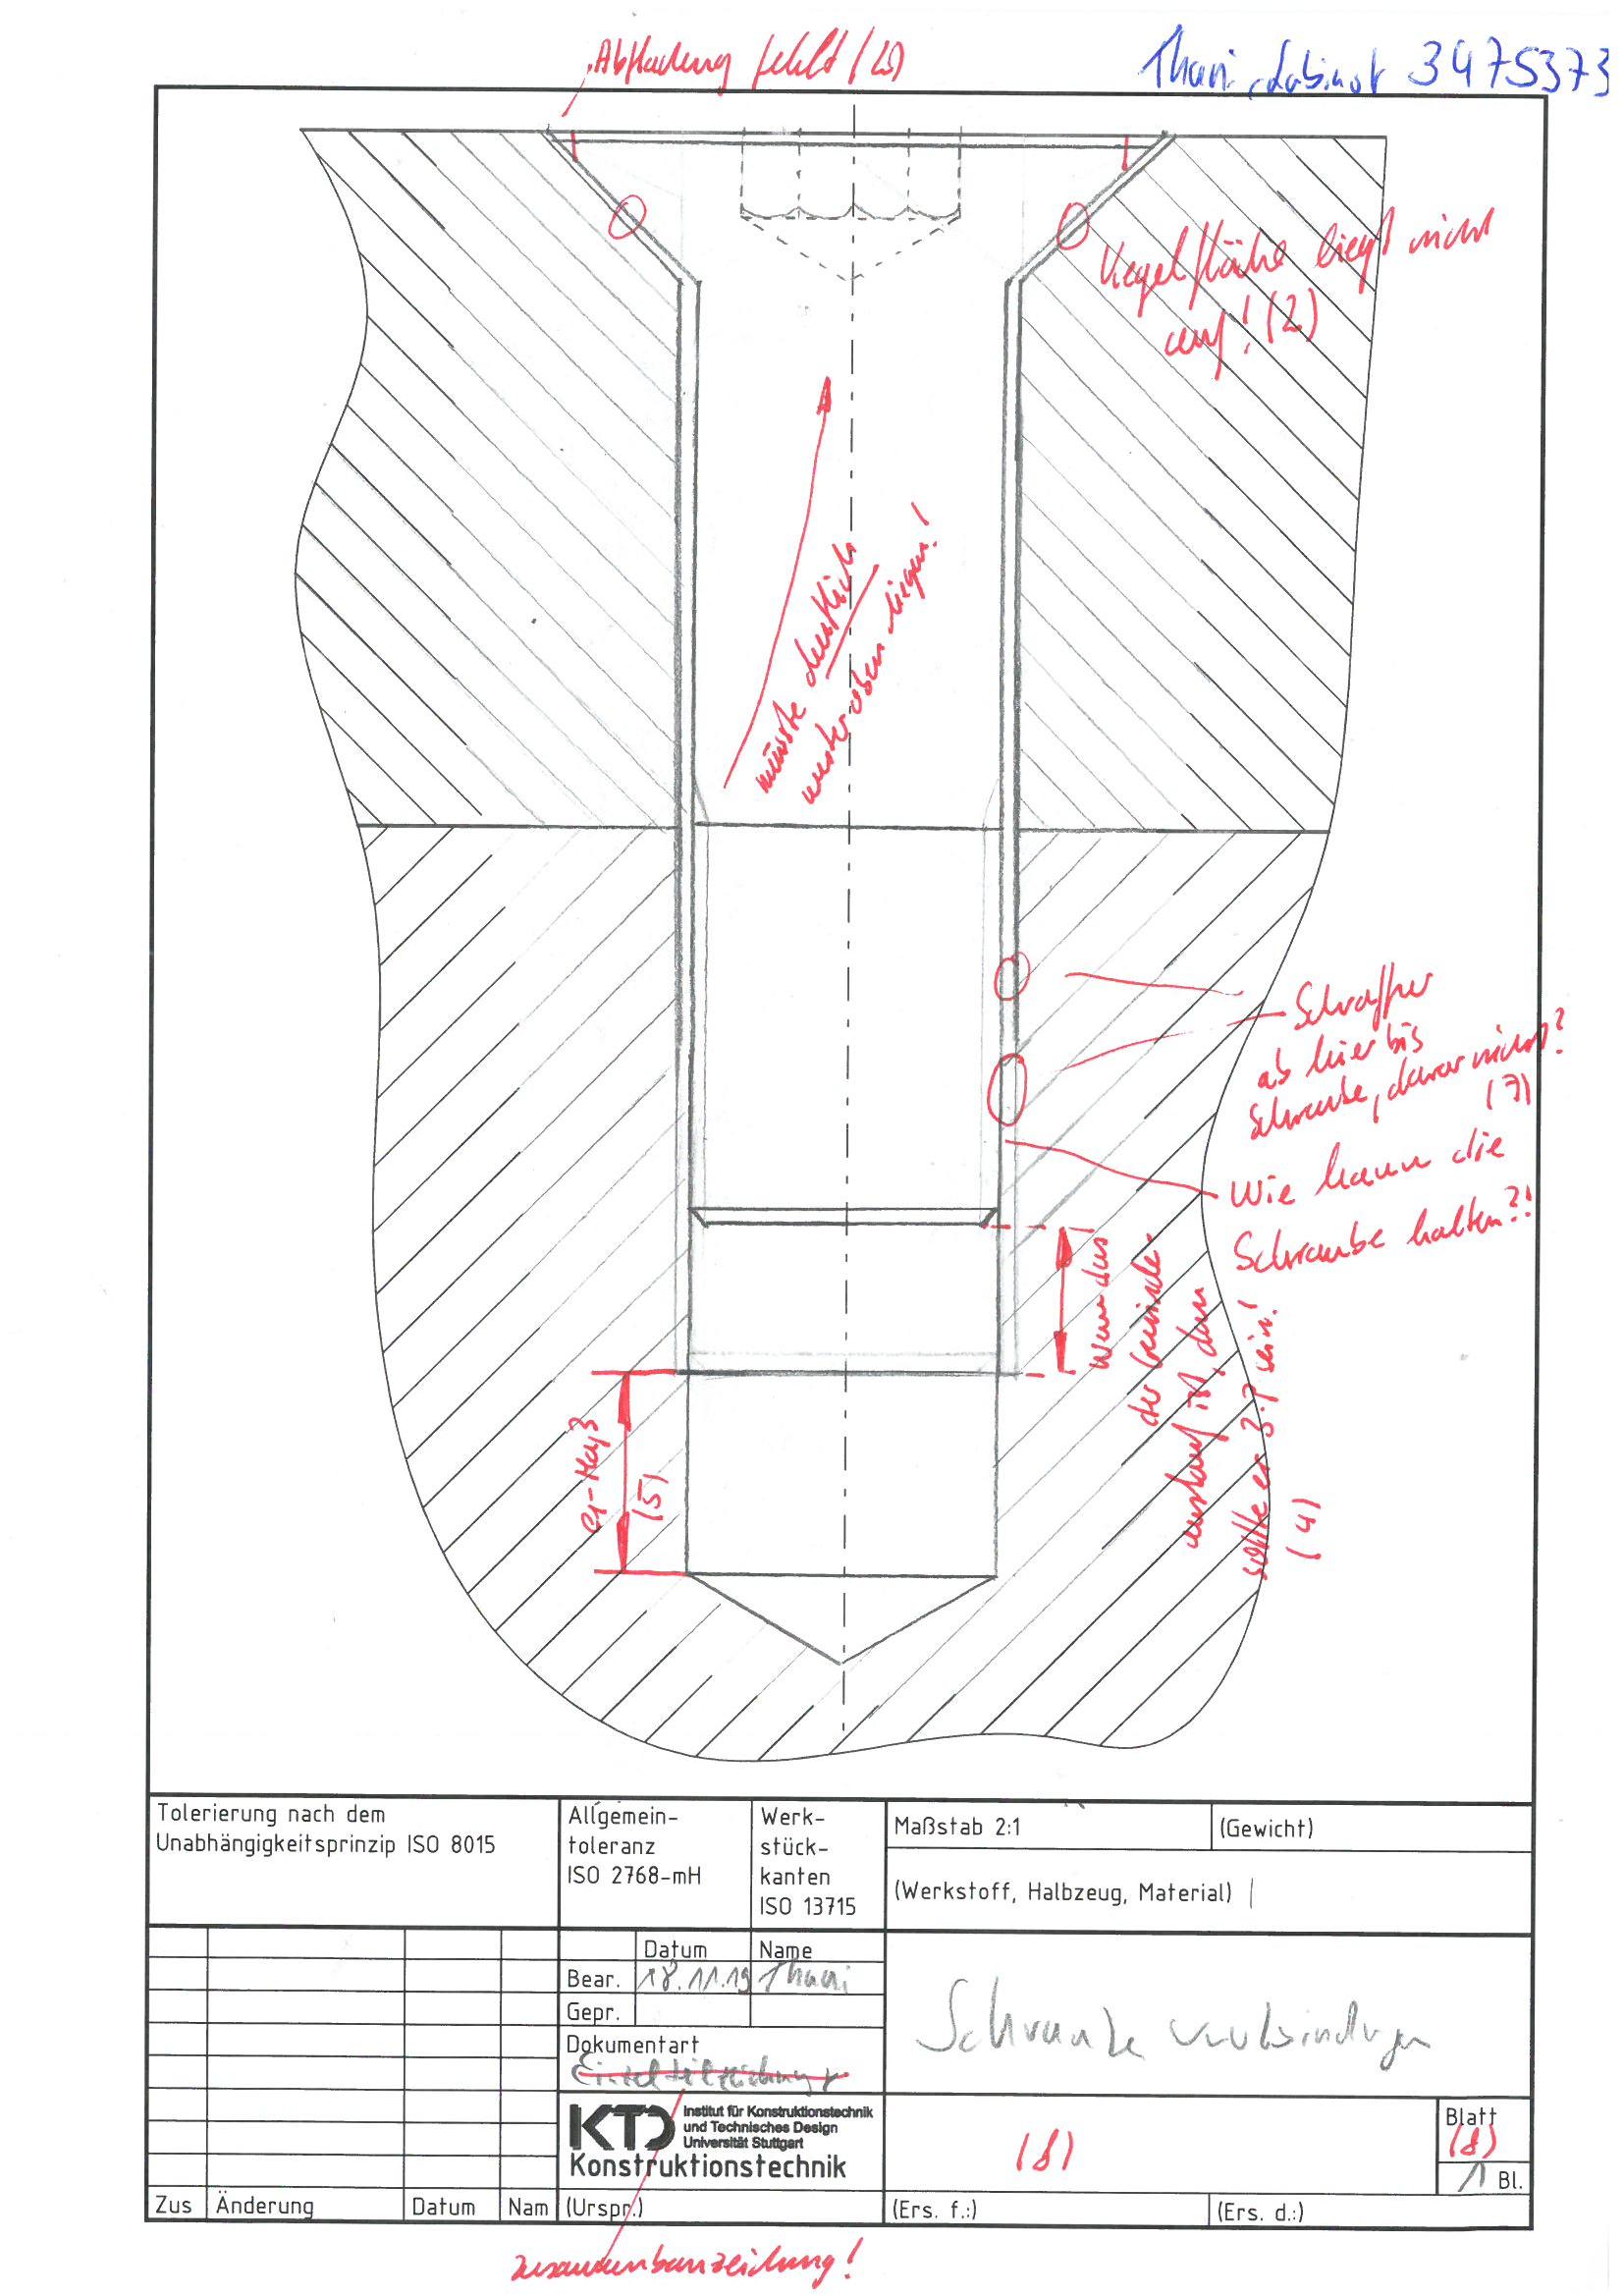 Abflachung fehlt (2)
Thaqi, Labinot 3475373
Kegelfläche liegt nicht
auf! (2)
müsste deutlich
weiter oben liegen!
Schraffur
ab hier bis
Schraube, davor nicht?
(7)
Wie kann die
Schraube halten?!
Wenn das
der Gewinde-
auslauf ist, dann
sollte er 3·P sein!
(4)
e1-Maß
(5)
Tolerierung nach dem
Unabhängigkeitsprinzip ISO 8015
Allgemein-
toleranz
ISO 2768-mH
Werk-
stück-
kanten
ISO 13715
Maßstab 2:1
(Gewicht)
(Werkstoff, Halbzeug, Material)
Datum Name
Bear. 18.11.19
Gepr.
Dokumentart
Einzelteilzeichnung
Schraubverbindungen
KTD Institut für Konstruktionstechnik
und Technisches Design
Universität Stuttgart
Konstruktionstechnik
(8)
Blatt
(8)
1 Bl.
Zus Änderung Datum Nam (Urspr.) (Ers. f.:) (Ers. d.:)
Zusammenbauzeichnung!